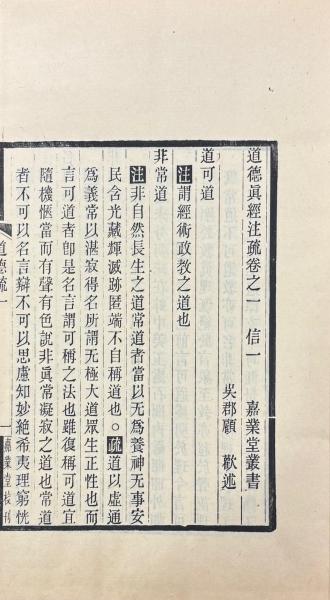 道德眞經注疏卷之一 信一 嘉業堂叢書
吳郡顧 歡述
道可道
注謂經術政教之道也
非常道
注非自然長生之道常道者當以无爲養神无事安
民含光藏輝滅跡匿端不自稱道也○疏道以虛通
爲義常以湛寂得名所謂无極大道眾生正性也而
言可道者卽是名言謂可稱之法也雖復稱可道宜
隨機愜當而有聲有色說非眞常凝寂之道也常道
者不可以名言辯不可以思慮知妙絶希夷理窮恍
道德疏一
嘉業堂校刊